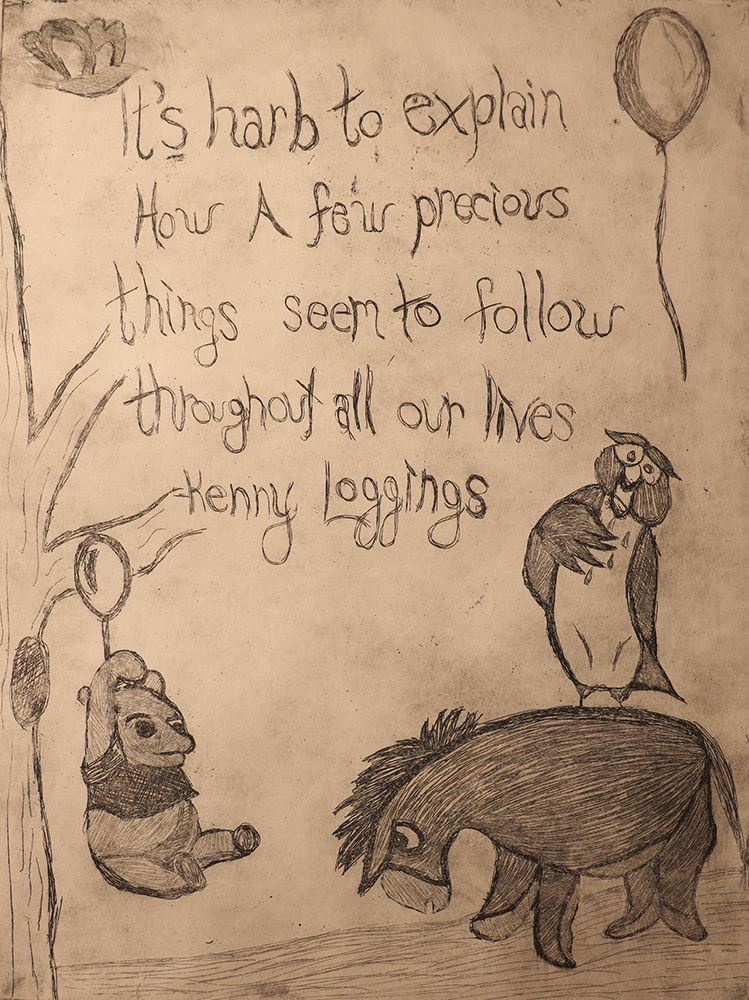 It's harb to explain
How A few precious
things seem to follow
throughout all our lives
Kenny Loggings